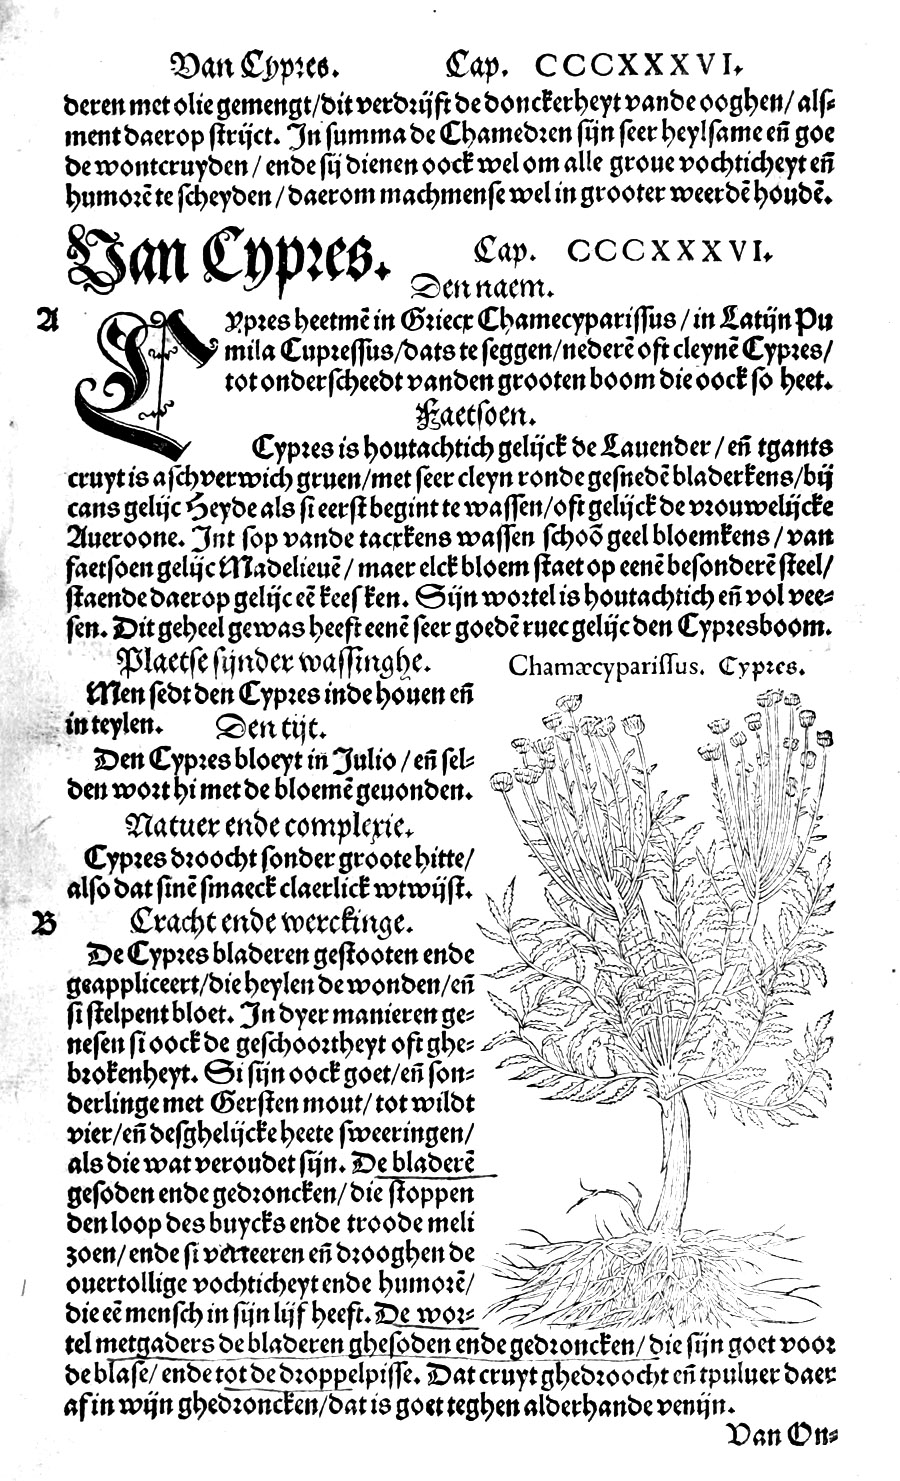 Van Cypres. Cap. CCCXXXVI.
deren met olie gemengt/dit verdrijft de donckerheyt vande ooghen/ als⸗
ment daerop strijct. In summa de Chamedren sijn seer heylsame eñ goe
de wontcruyden/ ende sij dienen oock wel om alle groue vochticheyt eñ
humorẽ te scheyden/daerom machmense wel in grooter weerdẽ houdẽ.
Van Cypres. Cap. CCCXXXVI.
Den naem.
A
CYpres heetmẽ in Griecx Chamecyparissus/in Latijn Pu
mila Cupressus/dats te seggen/nederẽ oft cleynẽ Cypres/
tot onderscheedt vanden grooten boom die oock so heet.
Faetsoen.
Cypres is houtachtich gelijck de Lauender/eñ tgants
cruyt is aschverwich gruen/met seer cleyn ronde gesnedẽ bladerkens/bij
cans gelijc Heyde als si eerst begint te wassen/oft gelijck de vrouwelijcke
Aueroone. Int sop vande tacxkens wassen schoõ geel bloemkens/van
faetsoen gelijc Madelieuẽ/ maer elck bloem staet op eenẽ besonderẽ steel/
staende daerop gelijc eẽ keesken. Sijn wortel is houtachtich eñ vol vee⸗
sen. Dit geheel gewas heeft eenẽ seer goedẽ ruec gelijc den Cypresboom.
Plaetse sijnder wassinghe.
Chamæcyparissus. Cypres.
Men sedt den Cypres inde houen eñ
in teylen. Den tijt.
Den Cypres bloeyt in Julio/eñ sel⸗
den wort hi met de bloemẽ geuonden.
Natuer ende complexie.
Cypres droocht sonder groote hitte/
also dat sinẽ smaeck claerlick wtwijst.
B
Cracht ende werckinge.
De Cypres bladeren gestooten ende
geappliceert/die heylen de wonden/eñ
si stelpent bloet. In dyer manieren ge⸗
nesen si oock de geschoortheyt oft ghe⸗
brokenheyt. Si sijn oock goet/eñ son⸗
derlinge met Gersten mout/tot wildt
vier/eñ desghelijcke heete sweeringen/
als die wat veroudet sijn. De bladerẽ
gesoden ende gedroncken/die stoppen
den loop des buycks ende troode meli
zoen/ende si verteeren eñ drooghen de
ouertollige vochticheyt ende humorẽ/
die eẽ mensch in sijn lijf heeft. De wor⸗
tel metgaders de bladeren ghesoden ende gedroncken/die sijn goet voor
de blase/ende tot de droppelpisse. Dat cruyt ghedroocht eñ tpuluer daer
af in wijn ghedroncken/dat is goet teghen alderhande venijn.
Van On⸗